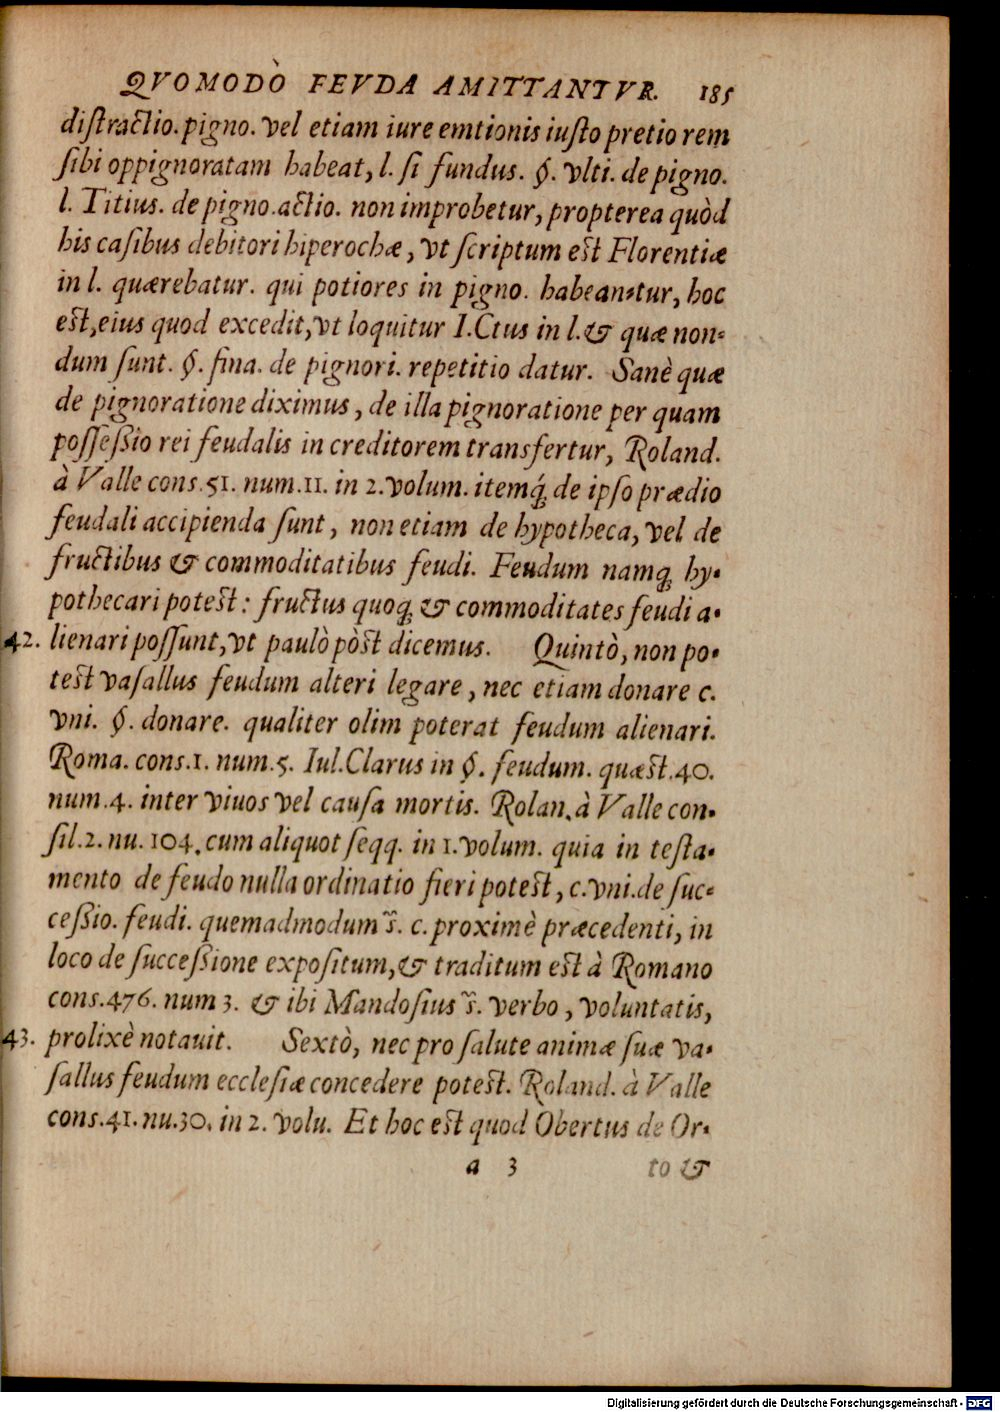 QVOMODÒ FEVDA AMITTANTVR. 185
diſtractio. pigno. vel etiam iure emtionis iuſto pretio rem
ſibi oppignoratam habeat, l. ſi fundus. §. vlti. de pigno.
l. Titius. de pigno. actio. non improbetur, propterea quòd
his caſibus debitori hiperochæ, vt ſcriptum eſt Florentiæ
in l. quærebatur. qui potiores in pigno. habean-tur, hoc
eſt, eius quod excedit, vt loquitur I.Ctus in l. & quæ non-
dum ſunt. §. fina. de pignori. repetitio datur. Sanè quæ
de pignoratione diximus, de illa pignoratione per quam
poſſeßio rei feudalis in creditorem transfertur, Roland.
à Valle cons. 51. num. 11. in 2. volum. itemq́; de ipſo prædio
feudali accipienda ſunt, non etiam de hypotheca, vel de
fructibus & commoditatibus feudi. Feudum namq; hy-
pothecari poteſt: fructus quoq; & commoditates feudi a-
42. lienari poſſunt, vt paulò pòſt dicemus. Quintò, non po-
teſt vaſallus feudum alteri legare, nec etiam donare c.
vni. §. donare. qualiter olim poterat feudum alienari.
Roma. cons. 1. num. 5. Iul. Clarus in §. feudum. quæſt. 40.
num. 4. inter viuos vel cauſa mortis. Rolan. à Valle con-
ſil. 2. nu. 104. cum aliquot ſeqq. in 1. volum. quia in teſta-
mento de feudo nulla ordinatio fieri poteſt, c. vni. de ſuc-
ceßio. feudi. quemadmodum s̃. c. proximè præcedenti, in
loco de ſucceßione expoſitum, & traditum eſt à Romano
cons. 476. num 3. & ibi Mandoſius s̃. verbo, voluntatis,
43. prolixè notauit. Sextò, nec pro ſalute animæ ſuæ va-
ſallus feudum eccleſiæ concedere poteſt. Roland. à Valle
cons. 41. nu. 30. in 2. volu. Et hoc eſt quod Obertus de Or-
a 3 to &
Digitalisierung gefördert durch die Deutsche Forschungsgemeinschaft - DFG